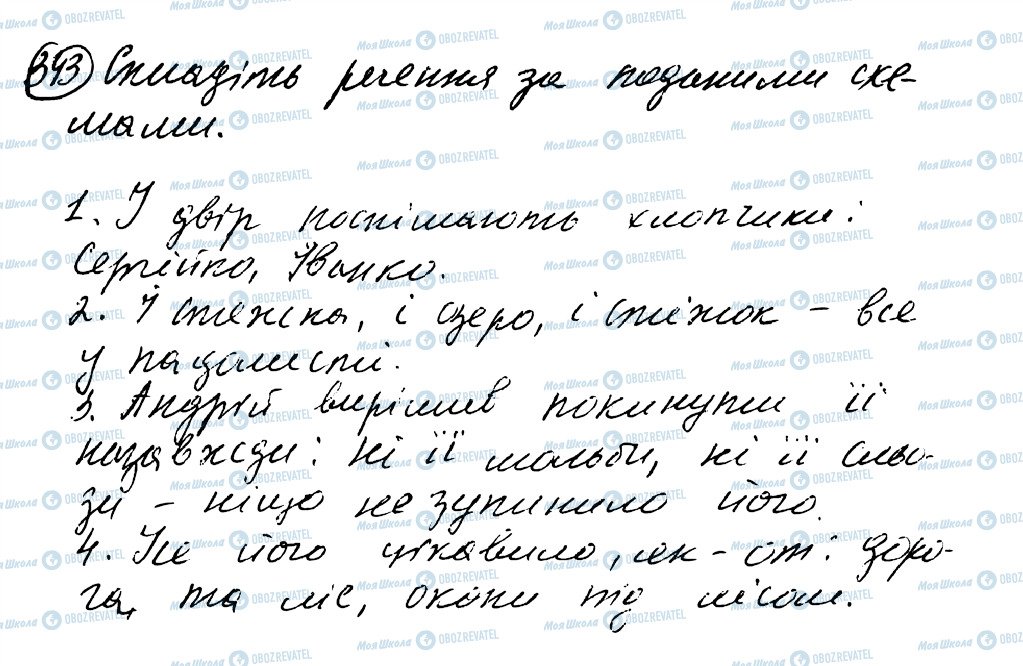 343 Складіть речення за поданими схе-
мами.
1. У двір поспішають хлопчики:
Сергійко, Іванко.
2. І стежка, і озеро, і сніжок – все
у падолисті.
3. Андрій вирішив покинути її
назавжди: ні її мольби, ні її сльо-
зи – ніщо не зупинило його.
4. Усе його цікавило, як-от: доро-
га, та ліс, окопи під лісом.